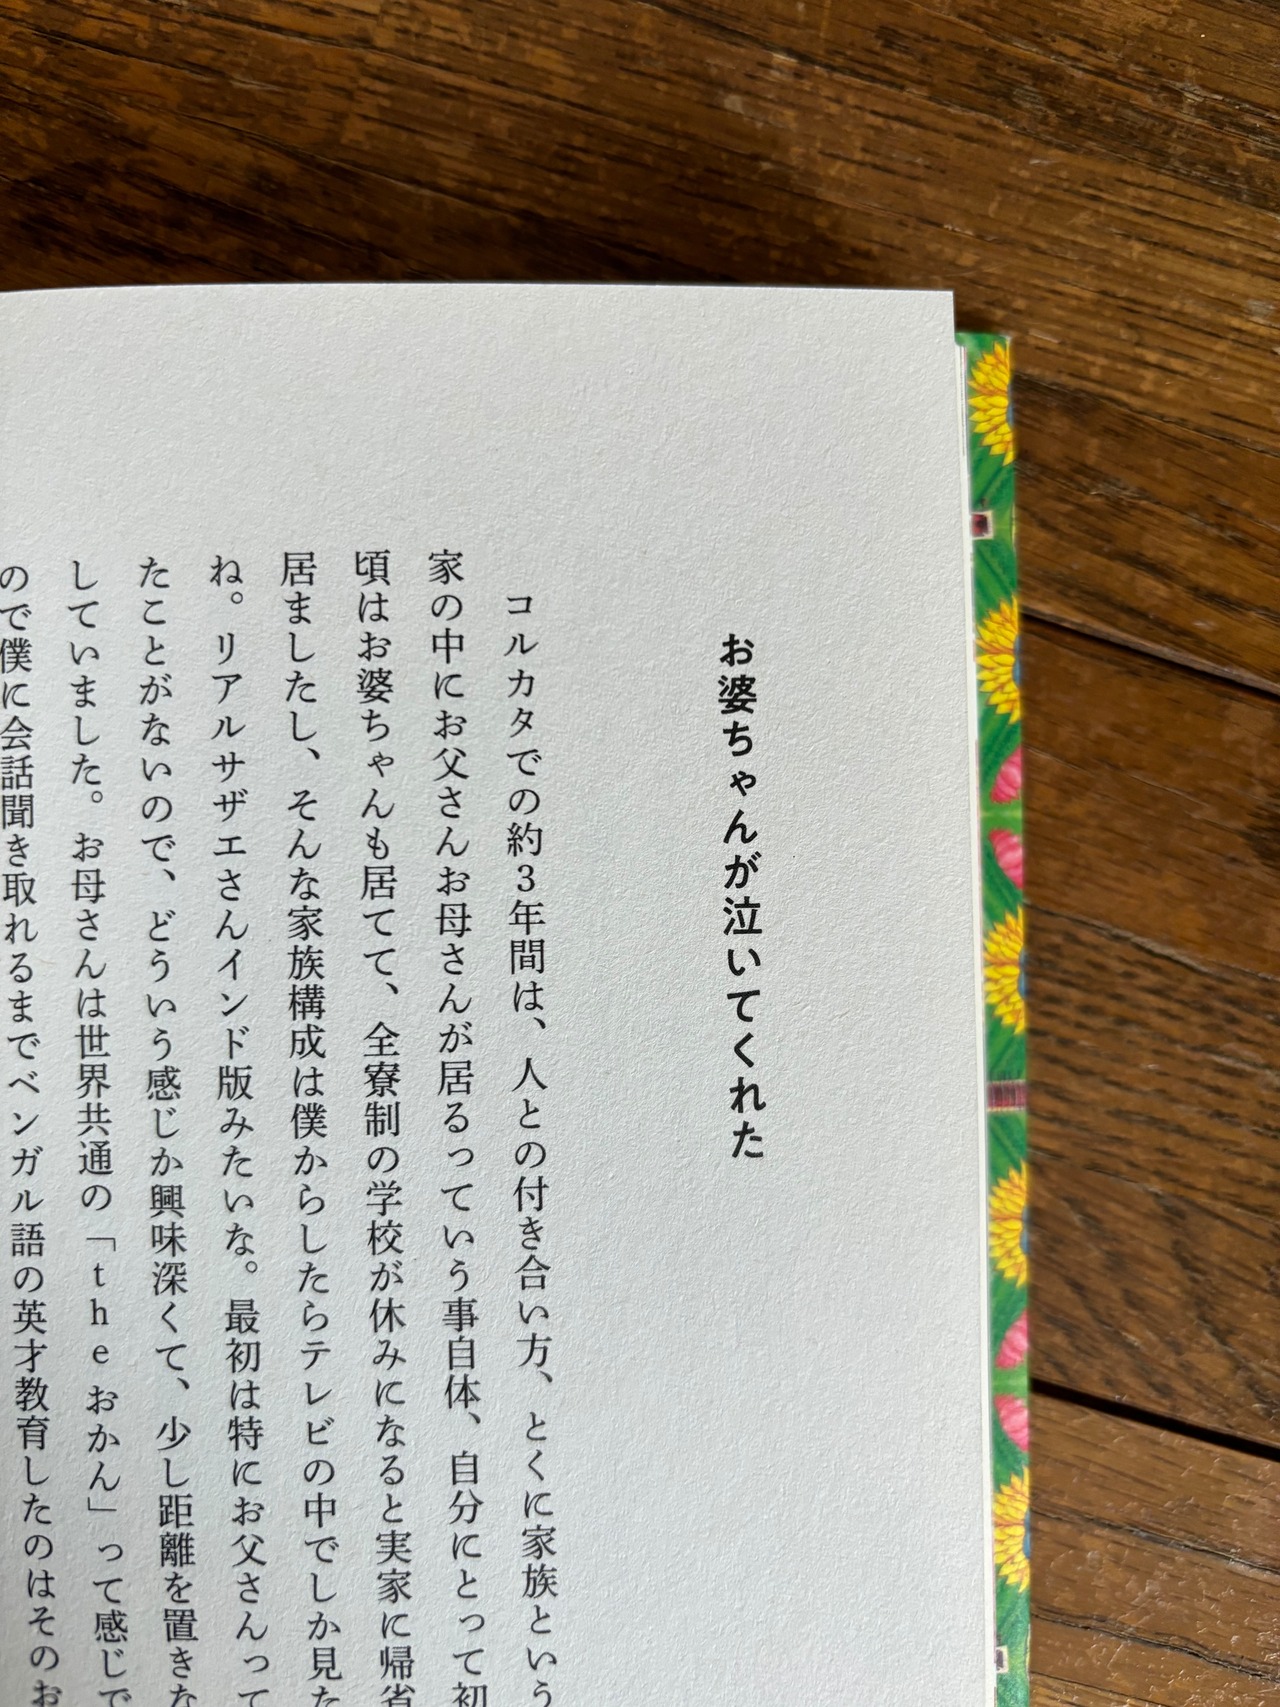 お婆ちゃんが泣いてくれた
コルカタでの約3年間は、人との付き合い方、とくに家族という
家の中にお父さんお母さんが居るっていう事自体、自分にとって初
頃はお婆ちゃんも居てて、全寮制の学校が休みになると実家に帰省
居ましたし、そんな家族構成は僕からしたらテレビの中でしか見た
ね。リアルサザエさんインド版みたいな。最初は特にお父さんって
たことがないので、どういう感じか興味深くて、少し距離を置きな
していました。お母さんは世界共通の「theおかん」って感じで
ので僕に会話聞き取れるまでベンガル語の英才教育したのはそのお